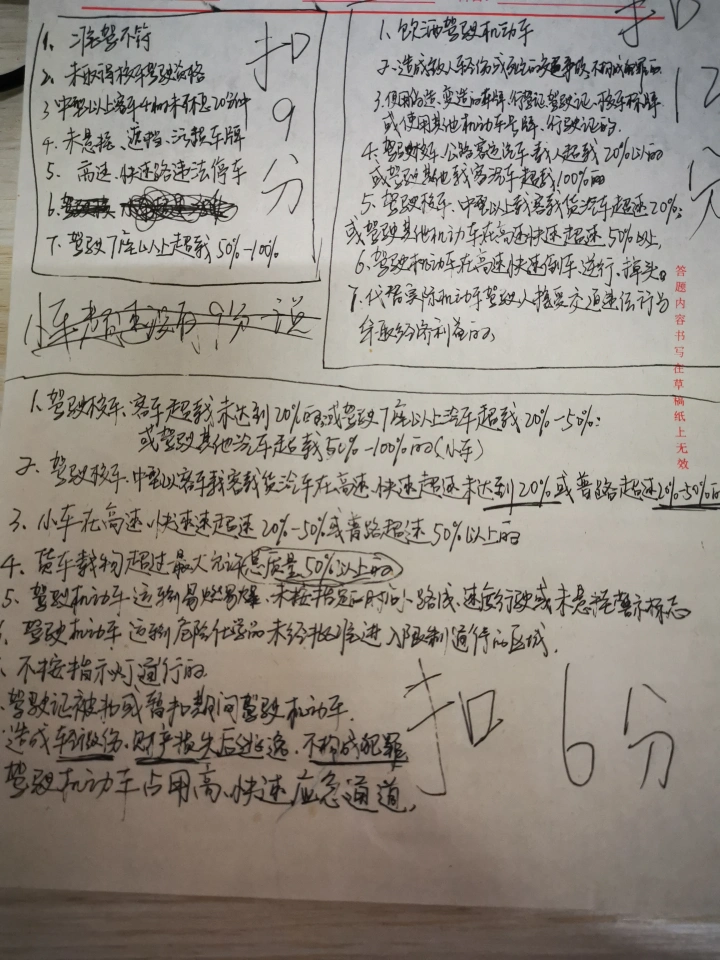 1、准驾不符
2、未取得校车驾驶资格
3、中型以上客车4小时未休息20分钟
4、未悬挂、遮挡、污损车牌
5、高速、快速路违法停车
6、
7、驾驶7座以上超载50%-100%
扣
9
分
小车超速没有9分一说
1、饮酒驾驶机动车
2、造成致人轻伤或死亡的交通事故,不构成犯罪的
3、使用伪造、变造的车牌、行驶证驾驶证、校车标牌
或使用其他机动车号牌、行驶证的.
4、驾驶校车、公路客运汽车载人超载20%以上的
或驾驶其他载客汽车超载100%的
5、驾驶校车、中型以上载客载货汽车超速20%;
或驾驶其他机动车在高速快速超速50%以上,
6、驾驶机动车在高速快速倒车、逆行、掉头。
7、代替实际机动车驾驶人接受交通违法行为
牟取经济利益的、
扣
12
分
答题内容书写在草稿纸上无效
1、驾驶校车、客车超载未达到20%的或驾驶7座以上汽车超载20%-50%:
或驾驶其他汽车超载50%-100%的(小车)
2、驾驶校车、中型以客车载客载货汽车在高速、快速超速未达到20%或普路超速20%-50%的
3、小车在高速、快速速超速20%-50%或普路超速50%以上的
4、货车载物超过最大允许总质量50%以上的
5、驾驶机动车运输易燃易爆、未按指定的时间、路线、速度行驶或未悬挂警示标志
、驾驶机动车运输危险化学品未经批准进入限制通行的区域.
、不按指示灯通行的.
、驾驶证被扣或暂扣期间驾驶机动车.
造成车轻微伤、财产损失后逃逸、不构成犯罪
驾驶机动车占用高、快速应急通道,
扣6分